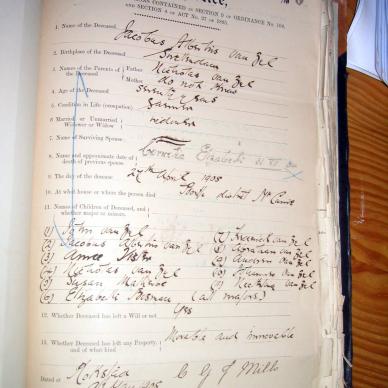 CONTAINED IN SECTION 9 OF ORDINANCE No. 104,
AND SECTION 4 OF ACT No. 37 OF 1885.
1. Name of the Deceased Jacobus Albertus van Zel
2. Birthplace of the Deceased
3. Names of the Parents of the Deceased Father Nicholas van Zel
Mother do not know
4. Age of the Deceased seventy years
5. Condition in Life (occupation) Farmer
6. Married or Unmarried Widower or Widow widower
7. Name of Surviving Spouse
8. Name and approximate date of death of previous spouse Elizabeth
9. The day of the decease 27th April 1905
10. At what house or where the person died district
11. Names of Children of Deceased, and whether major or minors.
(1) John van Zel
(2) Jacobus Albertus van Zel
(3)
(4) Nicholas van Zel
(5) Susan
(6) Elizabeth (all majors)
(7) Frederick van Zel
(8) Abraham van Zel
(9) Andries van Zel
(10) Johannes van Zel
(11) van Zel
12. Whether Deceased has left a Will or not Yes
13. Whether Deceased has left any Property, and of what kind Movable and immovable
Dated at
C G J Mills